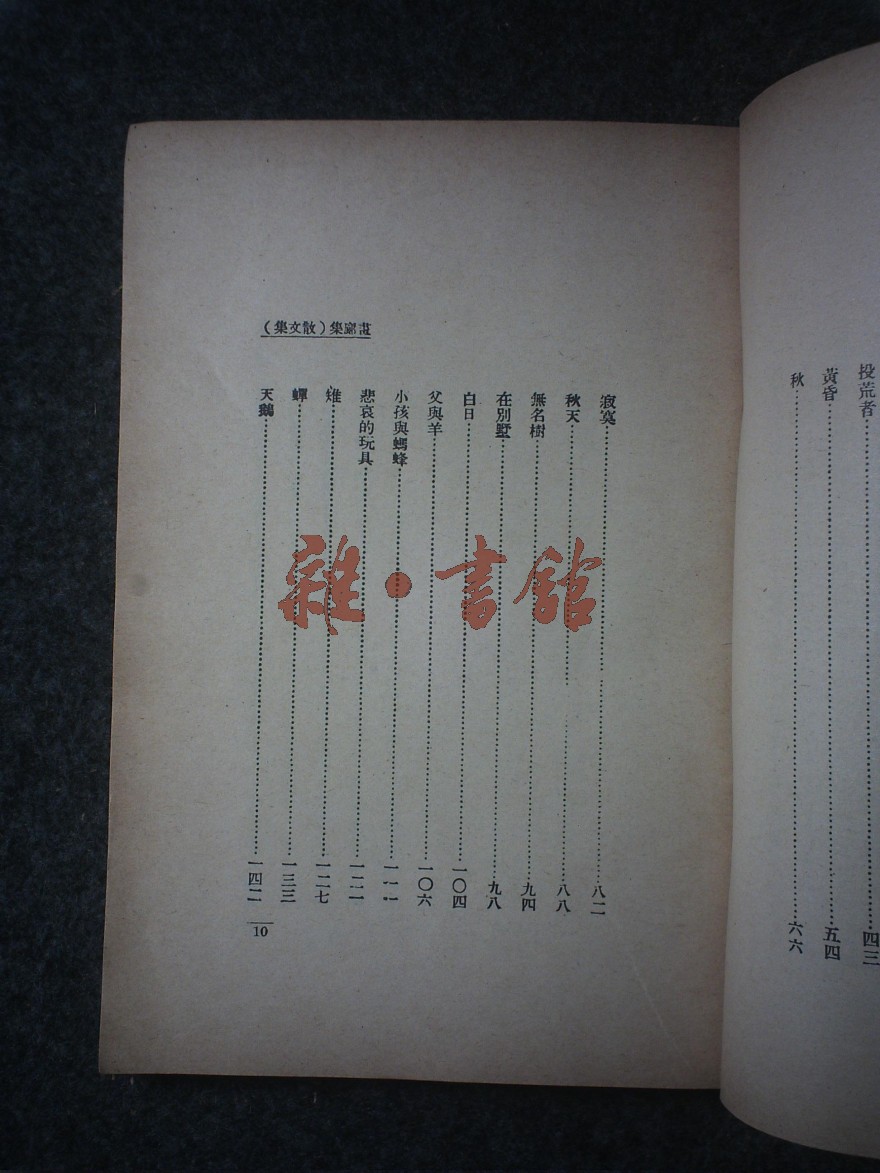 投荒者 四三
黃昏 五四
秋 六六
畫廊集（散文集）
寂寞 八二
秋天 八八
無名樹 九四
在別墅 九八
白日 一〇四
父與羊 一〇六
小孩與螞蜂 一一一
悲哀的玩具 一二一
雉 一二七
蟬 一三三
天鵝 一四二
10
雜·書館